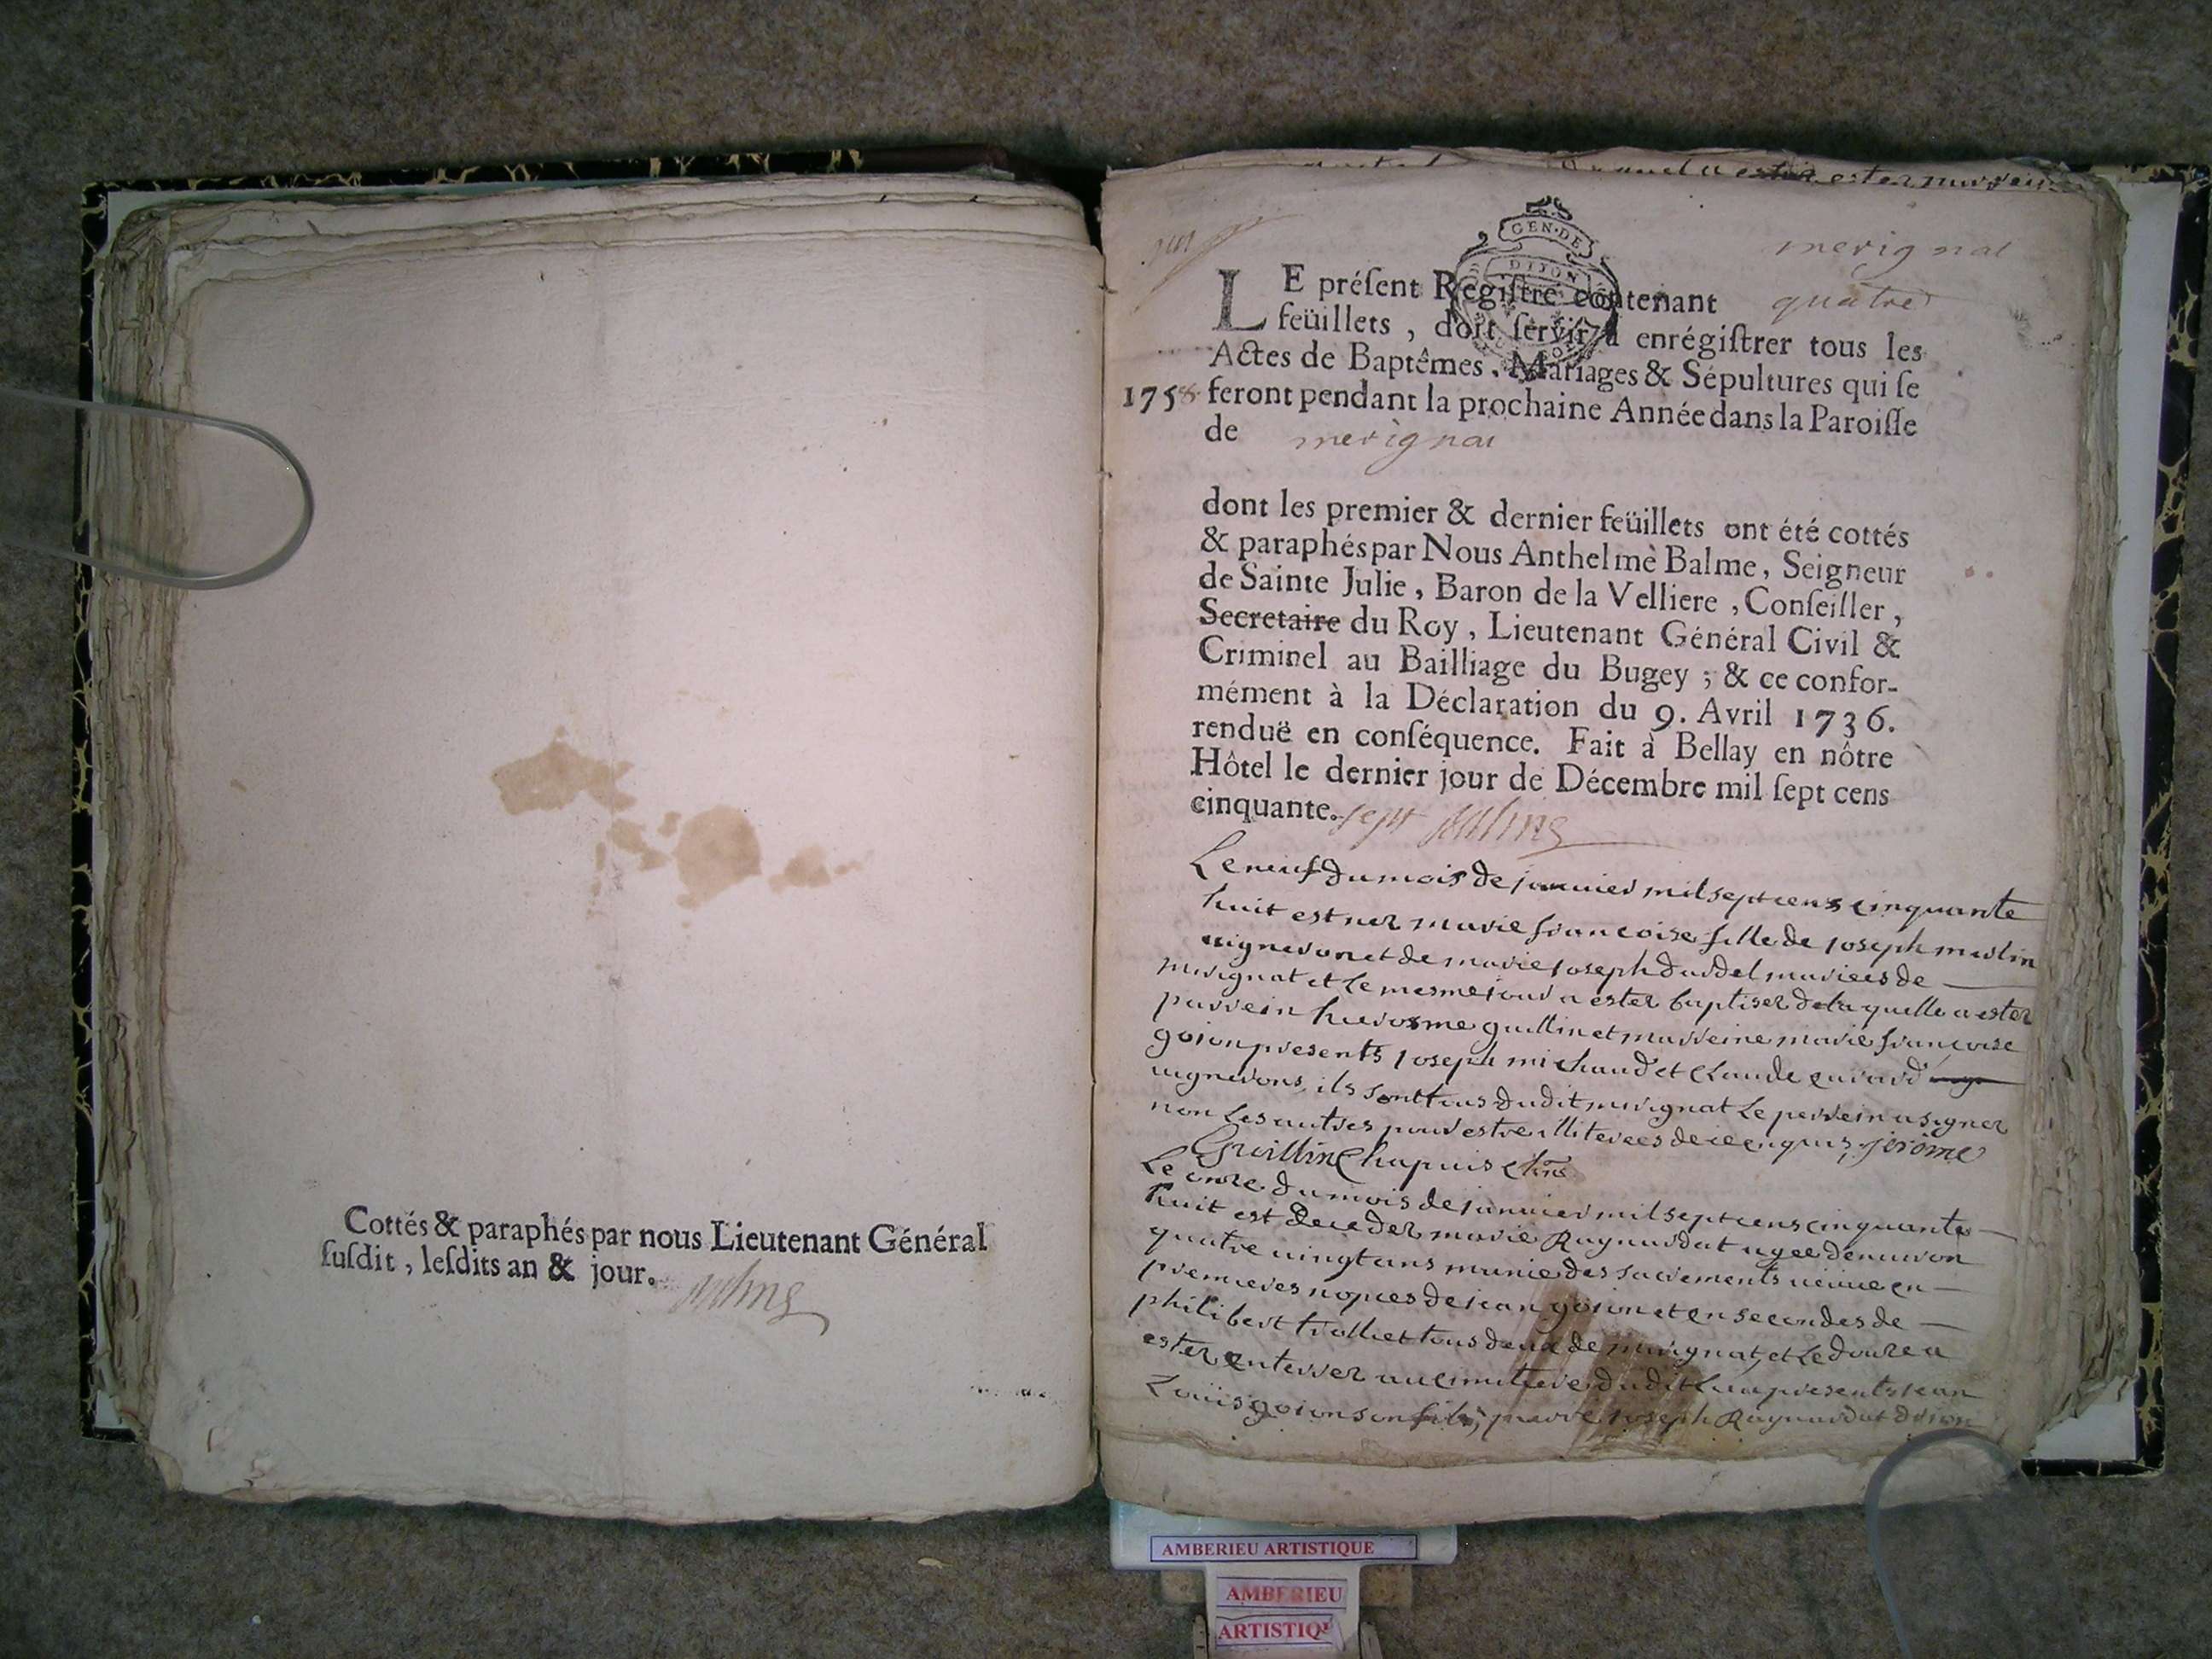 Cottés & paraphés par nous Lieutenant Général
ſuſdit, leſdits an & jour.
merignat
GEN·DE
DIJON
LE préſent Regiſtre contenant quatre
feüillets, doit ſervir à enrégiſtrer tous les
Actes de Baptêmes, Mariages & Sépultures qui ſe
1758 feront pendant la prochaine Année dans la Paroiſſe
de merignat
dont les premier & dernier feüillets ont été cottés
& paraphés par Nous Anthelme Balme, Seigneur
de Sainte Julie, Baron de la Velliere, Conſeiller,
Secretaire du Roy, Lieutenant Général Civil &
Criminel au Bailliage du Bugey; & ce confor-
mément à la Déclaration du 9. Avril 1736.
renduë en conſéquence. Fait à Bellay en nôtre
Hôtel le dernier jour de Décembre mil ſept cens
cinquante. sept
Le neuf du mois de janvier mil sept cens cinquante
huit est nez marie francoise fille de joseph merlin
vigneron et de marie joseph dardel mariees de
mirignat et le mesme jour a ester baptiser de laquelle a ester
parrein hierosme guillin et marreine marie francoise
goion presents joseph michaud et claude
vignerons, ils sont tous dudit mirignat le parrein a signer
non les autres pour estre illiterees de ce enquis, jerôme
Guillin Chapuis
Le onze du mois de janvier mil sept cens cinquante
huit est deceder marie Raynardat agee denviron
quatre vingt ans munie des sacrements veuve en
premieres nopces de jean goion et en secondes de
philibert trolliet tous deux de mirignat, et le douze a
ester enterrer au cimitiere dudit lieu presents jean
Loüis goion son fils, pierre joseph Raynardat
AMBERIEU ARTISTIQUE
AMBERIEU
ARTISTIQ